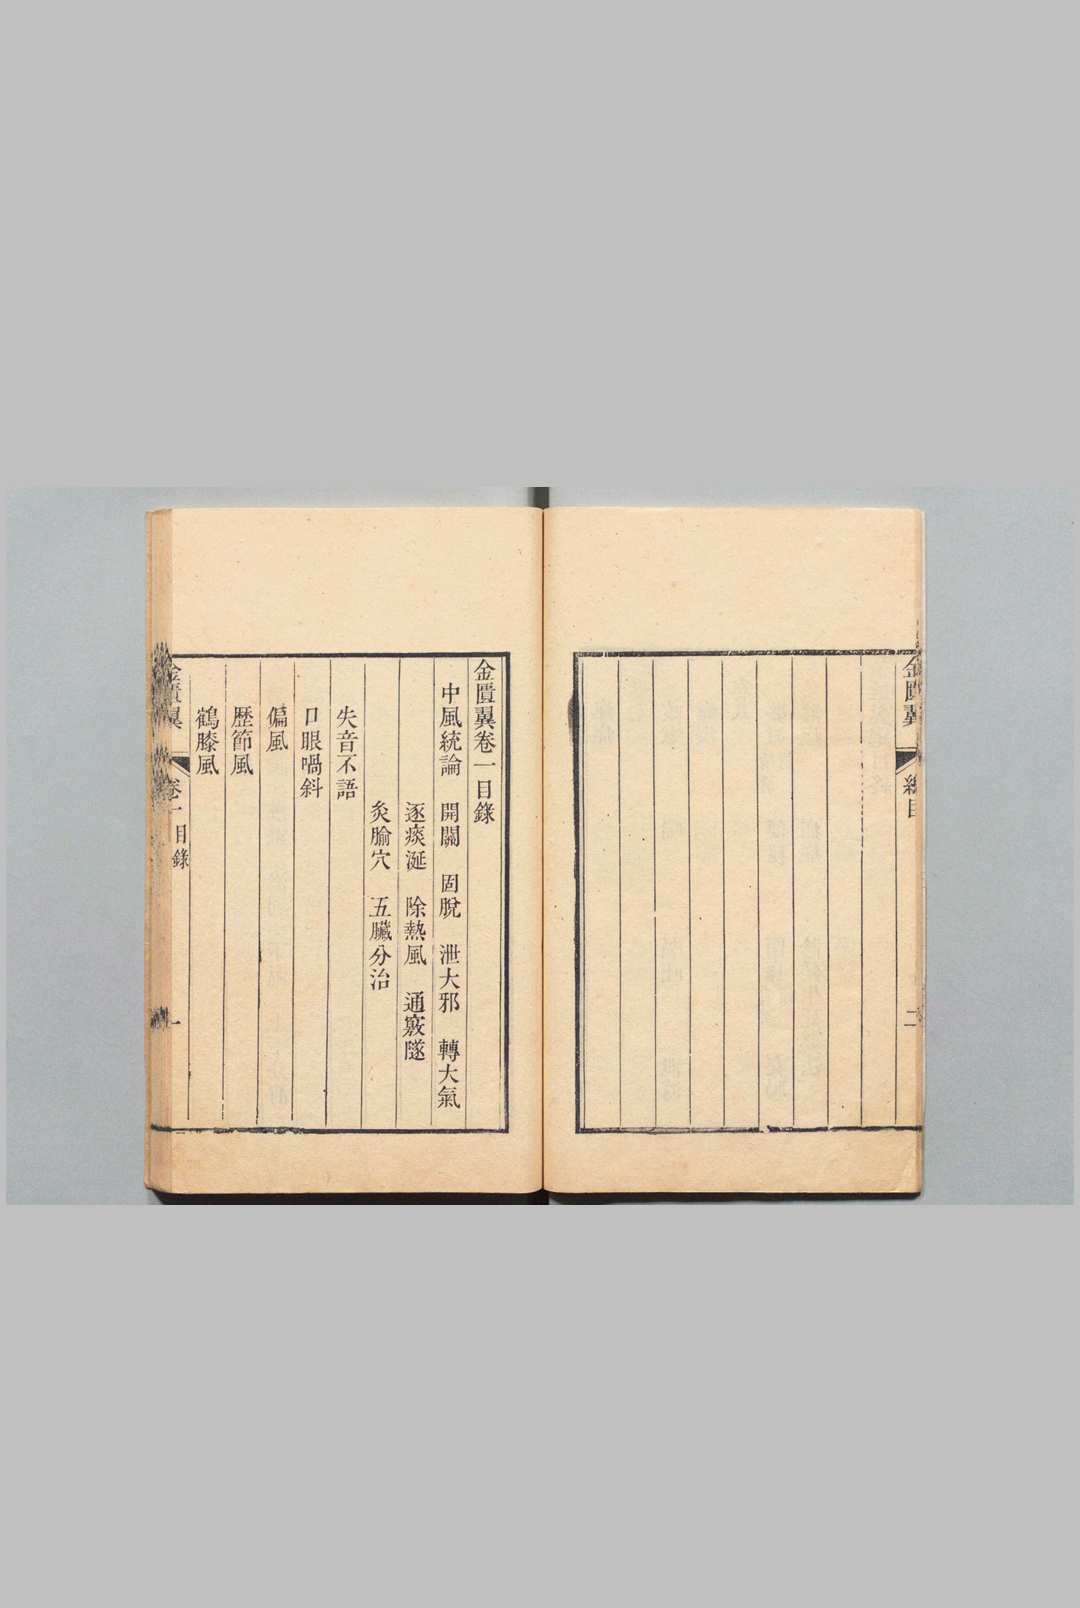 金匱翼
總目
二
金匱翼卷一目錄
中風統論　開關　固脫　泄大邪　轉大氣
逐痰涎　除熱風　通竅隧
灸腧穴　五臟分治
失音不語
口眼喎斜
偏風
歷節風
鶴膝風
金匱翼
卷一目錄
一